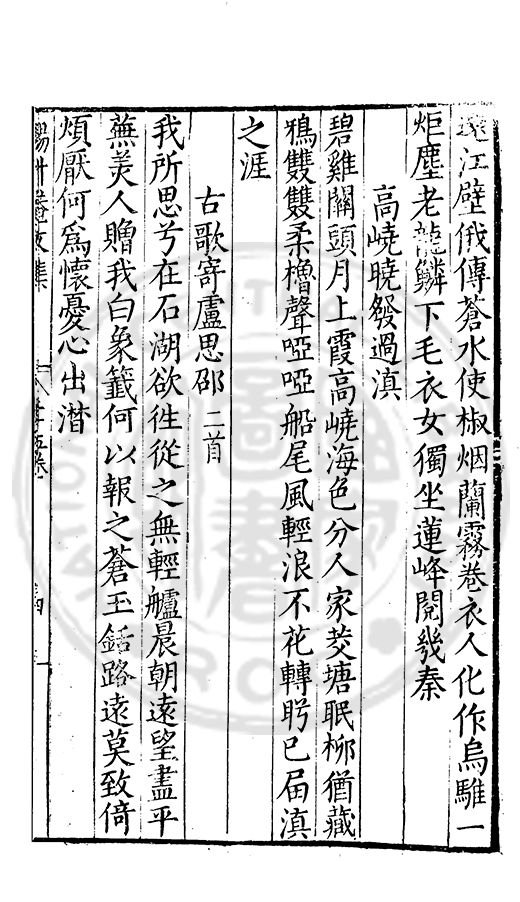 遠江璧俄傳蒼水使椒烟蘭霧卷衣人化作烏騅一
炬塵老龍鱗下毛衣女獨坐蓮峰閱幾秦
高嶢曉發過滇
碧雞關頭月上霞高嶢海色分人家茭塘眠柳猶藏
鴉雙雙柔櫓聲啞啞船尾風輕浪不花轉眄已届滇
之涯
古歌寄盧思邵二首
我所思兮在石湖欲徃從之無輕艫晨朝遠望盡平
蕪美人贈我白象籤何以報之蒼玉銛路遠莫致倚
煩厭何爲懷憂心出潛